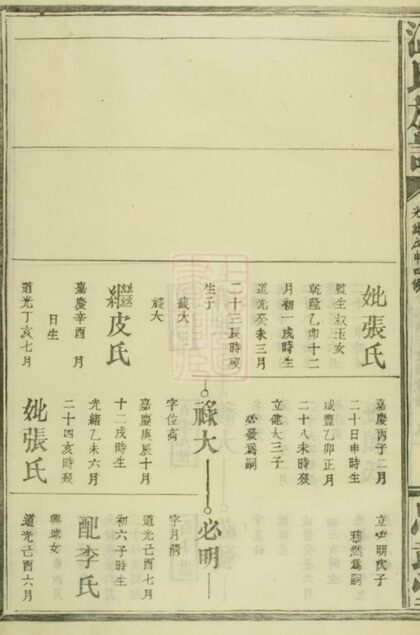 妣張氏
監生叔玉女
乾隆乙卯十二
月初一戌時生
道光癸未三月
二十三辰時歿
生子
馥大
祿大
繼皮氏
嘉慶辛酉 月
日生
道光丁亥七月
嘉慶丙子二月
二十日申時生
咸豐乙卯正月
二十八未時歿
立健大三子
必發爲嗣
祿大
字位高
嘉慶庚辰十月
十二戌時生
光緒乙未六月
二十四亥時歿
妣張氏
立必明次子
穆然爲嗣
必明
字月清
道光己酉七月
初六子時生
配李氏
興瑞女
道光己酉六月